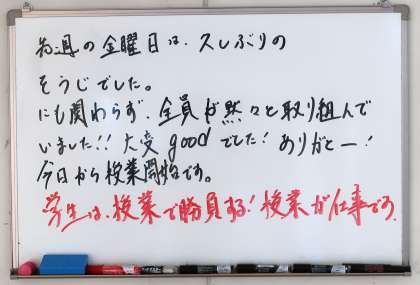 先週の金曜日は、久しぶりの
そうじでした。
にも関わらず、全員が黙々と取り組んで
いました!! 大変 good でした! ありがとー!
今日から授業開始です。
学生は、授業で勝負する! 授業が仕事です。